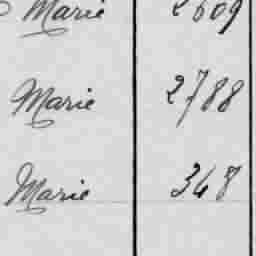 Marie 2609
Marie 2788
Marie 348